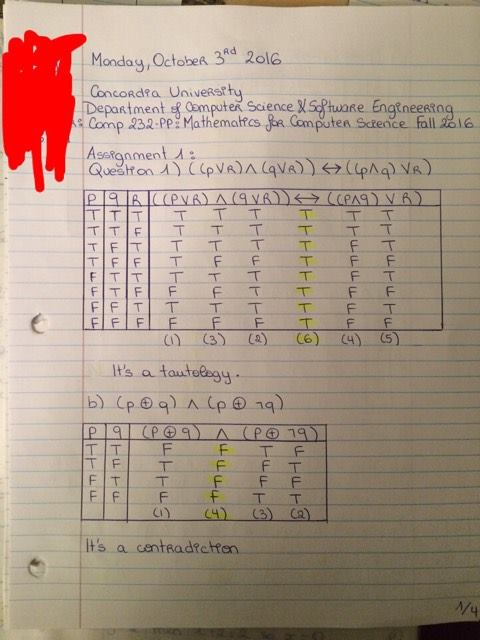 Monday, October 3rd 2016
Concordia University
Department of Computer Science & Software Engineering
Comp 232-PP: Mathematics for Computer Science Fall 2016
Assignment 1:
Question 1) ((p∨R)∧(q∨R)) ↔ ((p∧q) ∨R)
P q R ((P∨R) ∧ (q∨R)) ↔ ((P∧q) ∨ R)
T T T T T T T T T
T T F T T T T T T
T F T T T T T F T
T F F T F F T F F
F T T T T T T F T
F T F F F T T F F
F F T T T T T F T
F F F F F F T F F
(1) (3) (2) (6) (4) (5)
It's a tautology.
b) (p ⊕ q) ∧ (p ⊕ ¬q)
P q (P ⊕ q) ∧ (P ⊕ ¬q)
T T F F T F
T F T F F T
F T T F F F
F F F F T T
(1) (4) (3) (2)
It's a contradiction
1/4